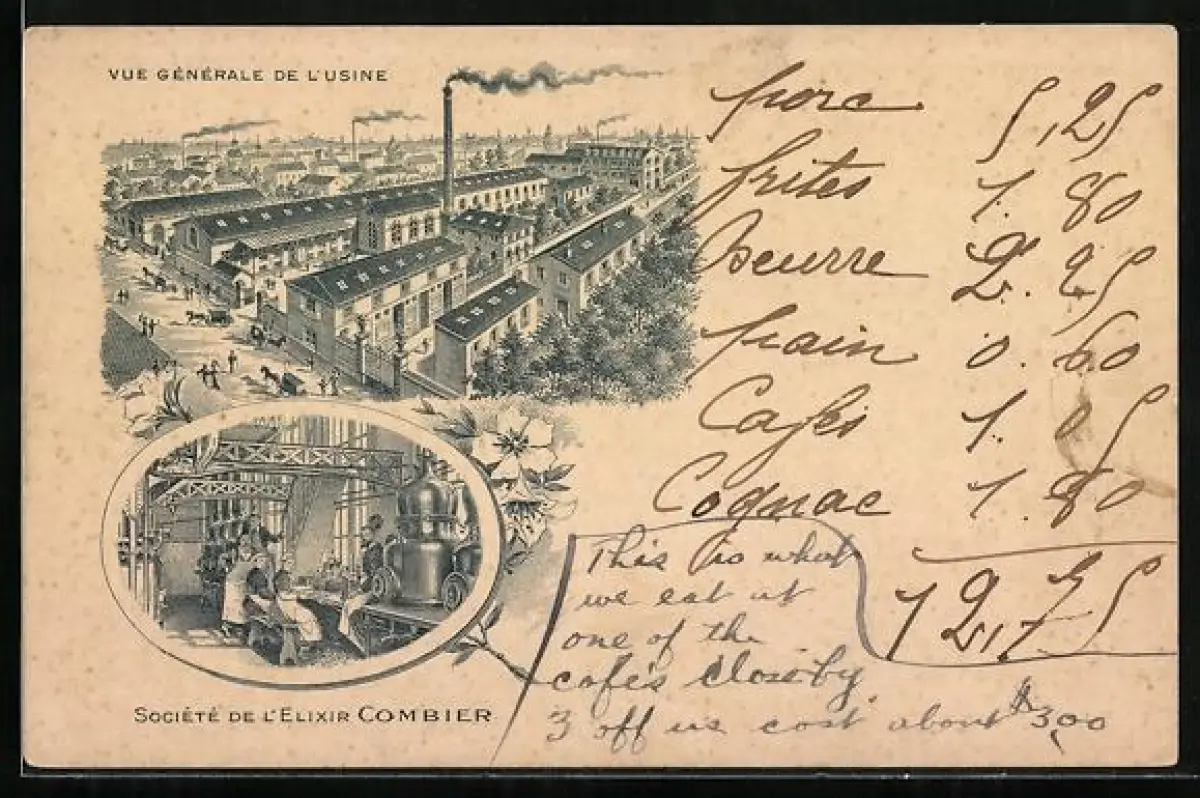 VUE GÉNÉRALE DE L'USINE
porc 5,25
frites 1.80
Beurre 2.25
pain 0.60
Cafés 1.05
Cognac 1.80
12,75
This is what
we eat at
one of the
cafe's closeby,
3 off us cost about $3,00
SOCIÉTÉ DE L'ELIXIR COMBIER